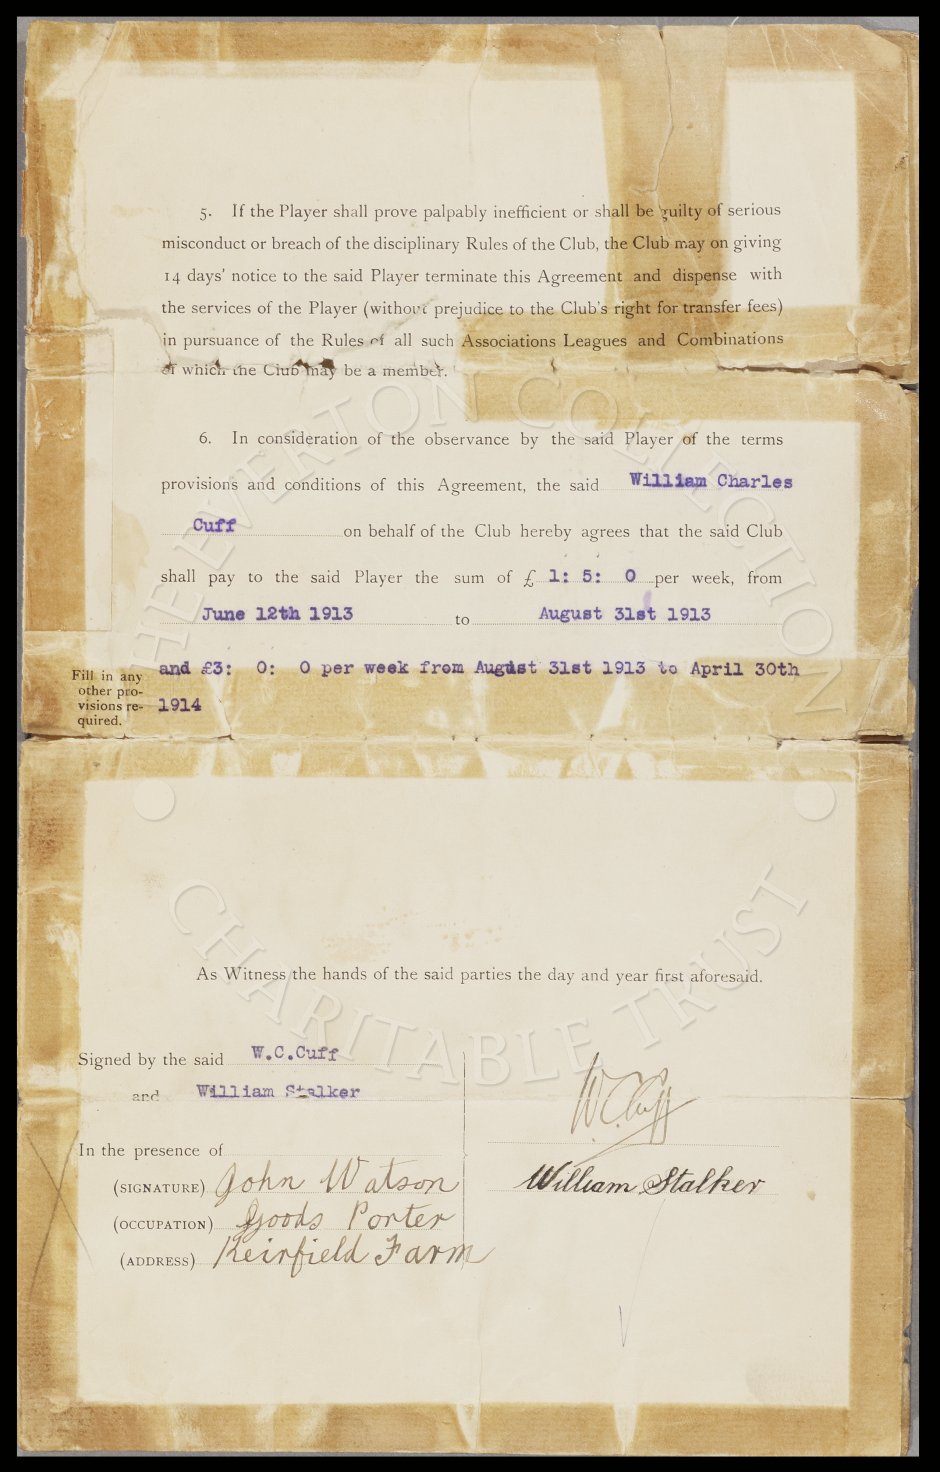 5. If the Player shall prove palpably inefficient or shall be guilty of serious
misconduct or breach of the disciplinary Rules of the Club, the Club may on giving
14 days' notice to the said Player terminate this Agreement and dispense with
the services of the Player (without prejudice to the Club's right for transfer fees)
in pursuance of the Rules of all such Associations Leagues and Combinations
of which the Club may be a member.
6. In consideration of the observance by the said Player of the terms
provisions and conditions of this Agreement, the said William Charles
Cuff on behalf of the Club hereby agrees that the said Club
shall pay to the said Player the sum of £ 1: 5: 0 per week, from
June 12th 1913 to August 31st 1913
and £3: 0: 0 per week from August 31st 1913 to April 30th
1914
Fill in any
other pro-
visions re-
quired.
As Witness the hands of the said parties the day and year first aforesaid.
Signed by the said W.C.Cuff
and William Stalker
W.C.Cuff
In the presence of
William Stalker
(SIGNATURE) John Watson
(OCCUPATION) Goods Porter
(ADDRESS) Keirfield Farm
THE EVERTON COLLECTION
CHARITABLE TRUST